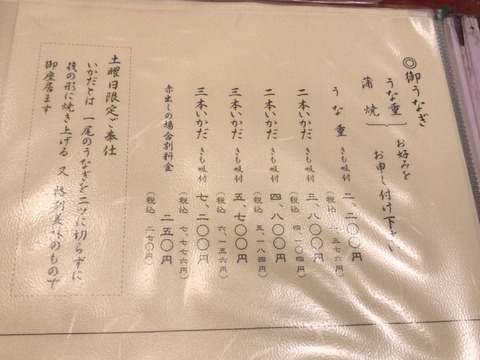 ◎御うなぎ
うな重
蒲焼
お好みを
お申し付け下さい
うな重 きも吸付 二、二〇〇円
(税込 二、三七六円)
二本いかだ きも吸付 三、八〇〇円
(税込 四、一〇四円)
二本いかだ きも吸付 四、八〇〇円
(税込 五、一八四円)
三本いかだ きも吸付 五、七〇〇円
(税込 六、一五六円)
三本いかだ きも吸付 七、二〇〇円
(税込 七、七七六円)
赤出しの場合別料金 二五〇円
(税込 二七〇円)
土曜日限定ご奉仕
いかだとは 一尾のうなぎを二ツに切らずに
筏の形に焼き上げる 又 格別美味のもので
御座居ます